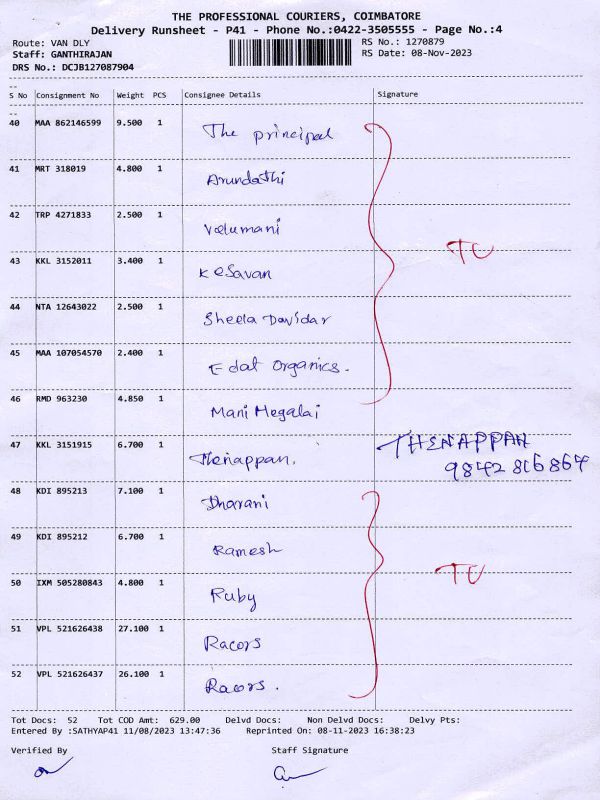 THE PROFESSIONAL COURIERS, COIMBATORE
Delivery Runsheet - P41 - Phone No.:0422-3505555 - Page No.:4
Route: VAN DLY RS No.: 1270879
Staff: GANTHIRAJAN RS Date: 08-Nov-2023
DRS No.: DCJB127087904
S No Consignment No Weight PCS Consignee Details Signature
40 MAA 862146599 9.500 1 The principal
41 MRT 318019 4.800 1 Arundathi
42 TRP 4271833 2.500 1 Velumani
TU
43 KKL 3152011 3.400 1 Kesavan
44 NTA 12643022 2.500 1 Sheela Davidar
45 MAA 107054570 2.400 1 Edat Organics.
46 RMD 963230 4.850 1 Mani Megalai
47 KKL 3151915 6.700 1 Thenappan. THENAPPAN
48 KDI 895213 7.100 1 Dharani
49 KDI 895212 6.700 1 Ramesh
TU
50 IXM 505280843 4.800 1 Ruby
51 VPL 521626438 27.100 1 Racors
52 VPL 521626437 26.100 1 Racors.
Tot Docs: 52 Tot COD Amt: 629.00 Delvd Docs: Non Delvd Docs: Delvy Pts:
Entered By :SATHYAP41 11/08/2023 13:47:36 Reprinted On: 08-11-2023 16:38:23
Verified By Staff Signature